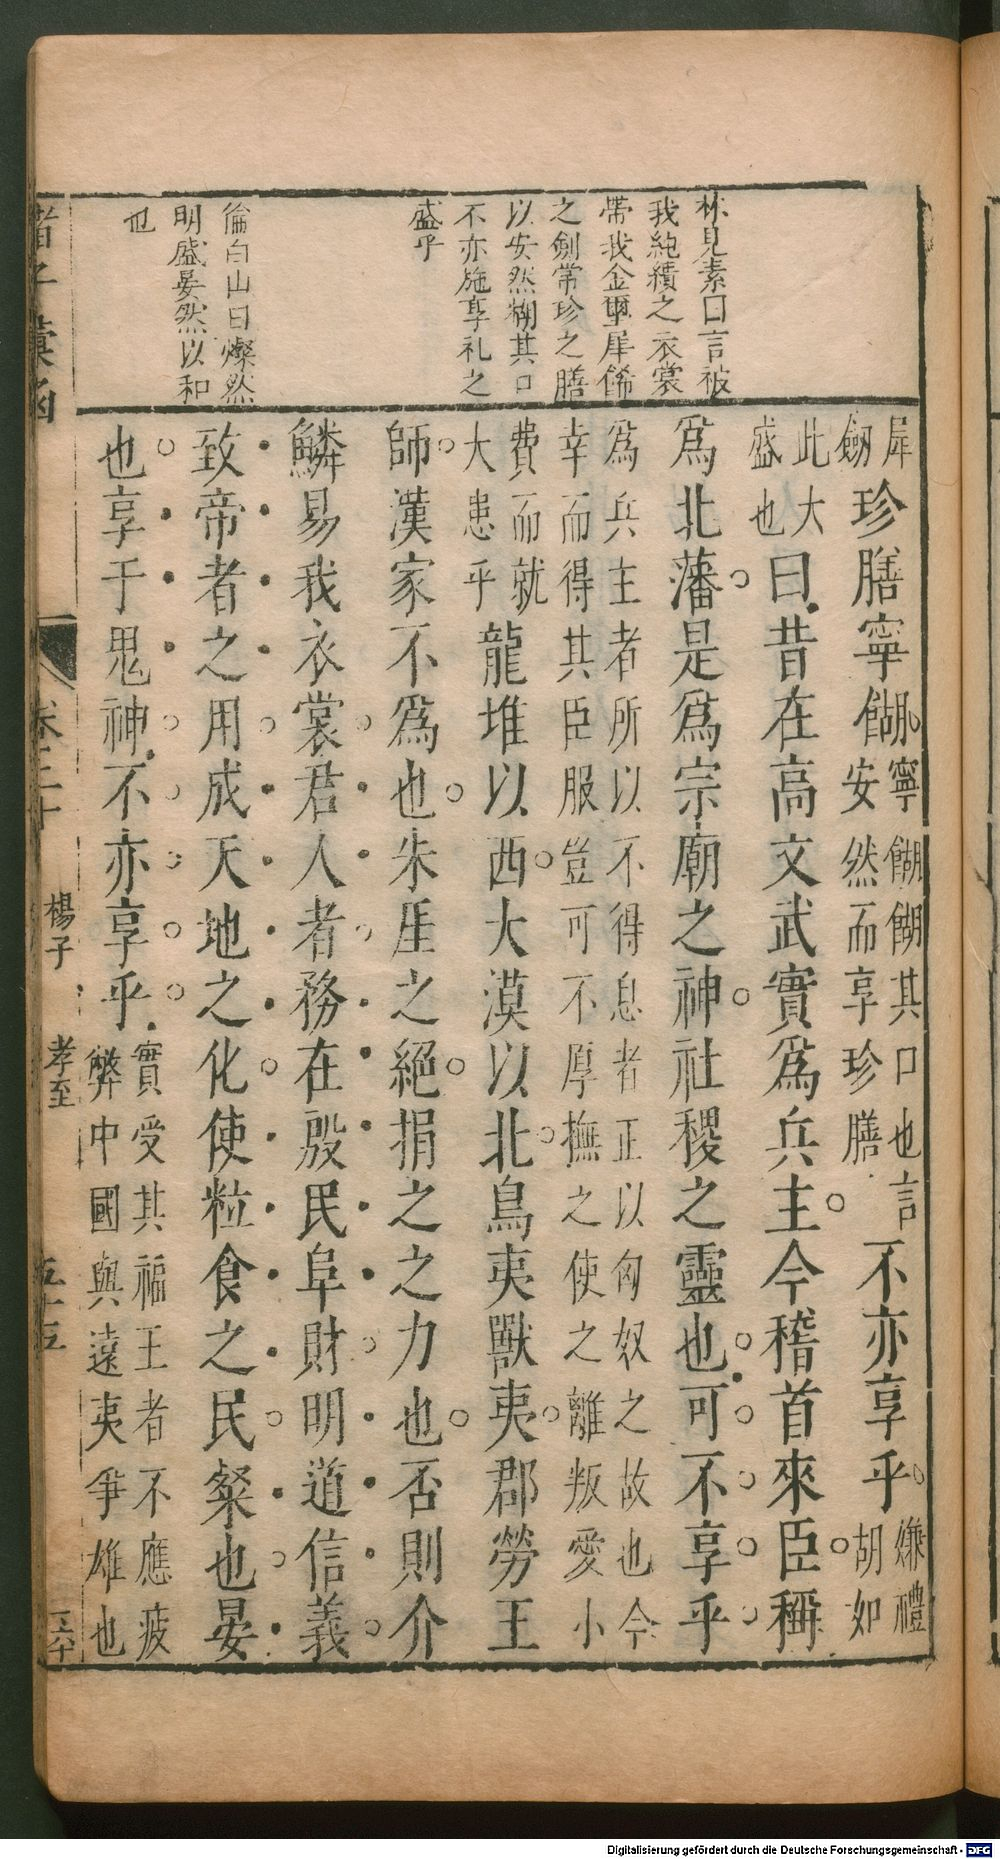 林見素曰言被
我純繢之衣裳
帶我金璽犀餙
之劍常珍之膳
以安然糊其口
不亦施享礼之
盛乎
倫白山曰燦然
明盛晏然以和
也
犀劒珍膳寧餬寧餬餬其口也言安然而享珍膳不亦享乎嫌禮胡如
此大盛也曰昔在高文武實爲兵主今稽首來臣稱
爲北藩是爲宗廟之神社稷之靈也可不享乎
爲兵主者所以不得息者正以匈奴之故也今
幸而得其臣服豈可不厚撫之使之離叛愛小
費而就大患乎龍堆以西大漠以北鳥夷獸夷郡勞王
師漢家不爲也朱厓之絕捐之之力也否則介
鱗易我衣裳君人者務在殷民阜財明道信義
致帝者之用成天地之化使粒食之民粲也晏
也享于鬼神不亦享乎實受其福王者不應疲弊中國與遠夷爭雄也
諸子彙函 卷二十 楊子 孝至 五十五
Digitalisierung gefördert durch die Deutsche Forschungsgemeinschaft - DFG